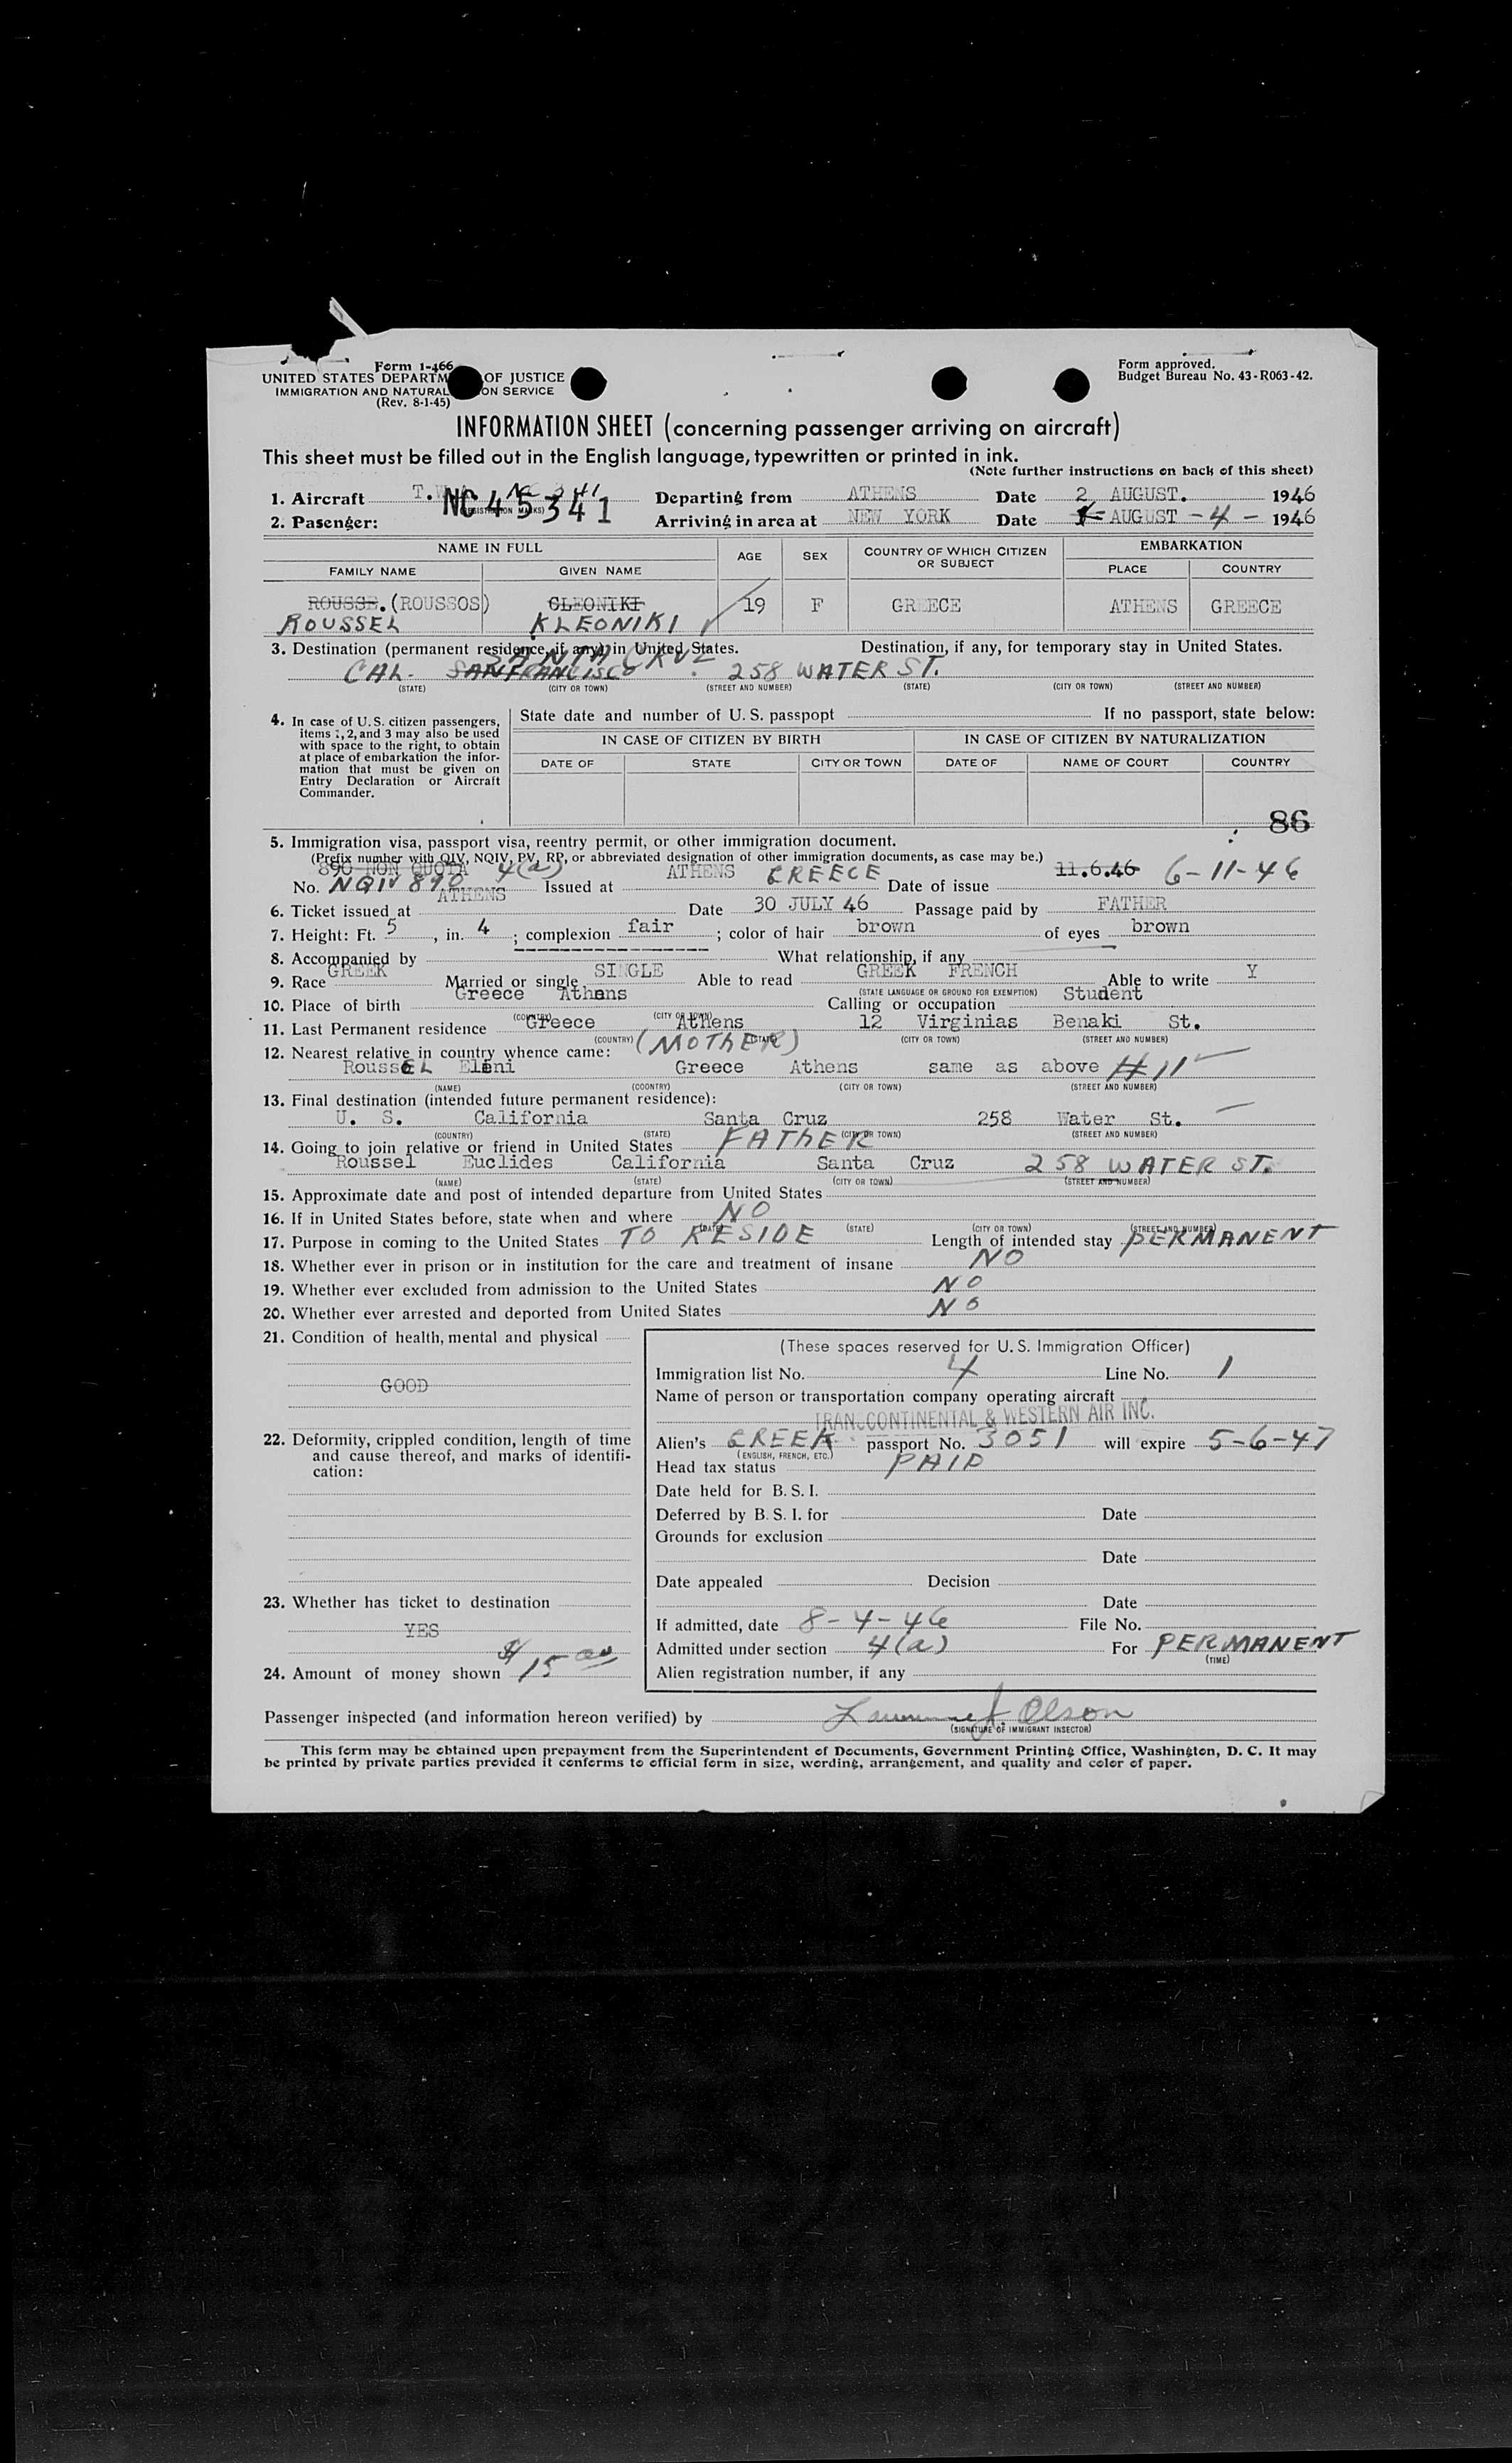 Form 1-466
UNITED STATES DEPARTM OF JUSTICE
IMMIGRATION AND NATURAL ON SERVICE
(Rev. 8-1-45)
Form approved.
Budget Bureau No. 43-R063-42.
INFORMATION SHEET (concerning passenger arriving on aircraft)
This sheet must be filled out in the English language, typewritten or printed in ink.
(Note further instructions on back of this sheet)
1. Aircraft T.W.A. NC 45341 Departing from ATHENS Date 2 AUGUST. 1946
(REGISTRATION MARKS)
2. Pasenger: Arriving in area at NEW YORK Date AUGUST -4- 1946
NAME IN FULL AGE SEX COUNTRY OF WHICH CITIZEN OR SUBJECT EMBARKATION
FAMILY NAME GIVEN NAME PLACE COUNTRY
ROUSSE. (ROUSSOS) CLEONIKI 19 F GREECE ATHENS GREECE
ROUSSEL KLEONIKI
3. Destination (permanent residence, if any) in United States. Destination, if any, for temporary stay in United States.
SANTA CRUZ
CAL. SANFRANCISCO 258 WATER ST.
(STATE) (CITY OR TOWN) (STREET AND NUMBER) (STATE) (CITY OR TOWN) (STREET AND NUMBER)
4. In case of U.S. citizen passengers, items 1, 2, and 3 may also be used with space to the right, to obtain at place of embarkation the information that must be given on Entry Declaration or Aircraft Commander.
State date and number of U.S. passpopt If no passport, state below:
IN CASE OF CITIZEN BY BIRTH IN CASE OF CITIZEN BY NATURALIZATION
DATE OF STATE CITY OR TOWN DATE OF NAME OF COURT COUNTRY
86
5. Immigration visa, passport visa, reentry permit, or other immigration document.
(Prefix number with QIV, NQIV, PV, RP, or abbreviated designation of other immigration documents, as case may be.)
890 NON QUOTA 4(a) ATHENS GREECE 11.6.46 6-11-46
No. NQIV 890 Issued at Date of issue
6. Ticket issued at ATHENS Date 30 JULY 46 Passage paid by FATHER
7. Height: Ft. 5, in. 4; complexion fair; color of hair brown of eyes brown
8. Accompanied by What relationship, if any
9. Race GREEK Married or single SINGLE Able to read GREEK FRENCH Able to write Y
(STATE LANGUAGE OR GROUND FOR EXEMPTION)
10. Place of birth Greece Athens Calling or occupation Student
(COUNTRY) (CITY OR TOWN)
11. Last Permanent residence Greece Athens 12 Virginias Benaki St.
(COUNTRY) (STATE) (CITY OR TOWN) (STREET AND NUMBER)
12. Nearest relative in country whence came: (MOTHER)
RoussEL Eleni Greece Athens same as above #11
(NAME) (COONTRY) (CITY OR TOWN) (STREET AND NUMBER)
13. Final destination (intended future permanent residence):
U. S. California Santa Cruz 258 Water St.
(COUNTRY) (STATE) (CITY OR TOWN) (STREET AND NUMBER)
14. Going to join relative or friend in United States FATHER
Roussel Euclides California Santa Cruz 258 WATER ST.
(NAME) (STATE) (CITY OR TOWN) (STREET AND NUMBER)
15. Approximate date and post of intended departure from United States
16. If in United States before, state when and where NO
(DATE) (STATE) (CITY OR TOWN) (STREET AND NUMBER)
17. Purpose in coming to the United States TO RESIDE Length of intended stay PERMANENT
18. Whether ever in prison or in institution for the care and treatment of insane NO
19. Whether ever excluded from admission to the United States NO
20. Whether ever arrested and deported from United States NO
21. Condition of health, mental and physical
GOOD
22. Deformity, crippled condition, length of time and cause thereof, and marks of identification:
23. Whether has ticket to destination
YES
24. Amount of money shown $15 00
(These spaces reserved for U.S. Immigration Officer)
Immigration list No. 4 Line No. 1
Name of person or transportation company operating aircraft
TRANSCONTINENTAL & WESTERN AIR INC.
Alien's GREEK passport No. 3051 will expire 5-6-47
(ENGLISH, FRENCH, ETC.)
Head tax status PAID
Date held for B. S. I.
Deferred by B. S. I. for Date
Grounds for exclusion
Date
Date appealed Decision
Date
If admitted, date 8-4-46 File No.
Admitted under section 4(a) For PERMANENT
(TIME)
Alien registration number, if any
Passenger inspected (and information hereon verified) by J. Olson
(SIGNATURE OF IMMIGRANT INSECTOR)
This form may be obtained upon prepayment from the Superintendent of Documents, Government Printing Office, Washington, D. C. It may
be printed by private parties provided it conforms to official form in size, wording, arrangement, and quality and color of paper.